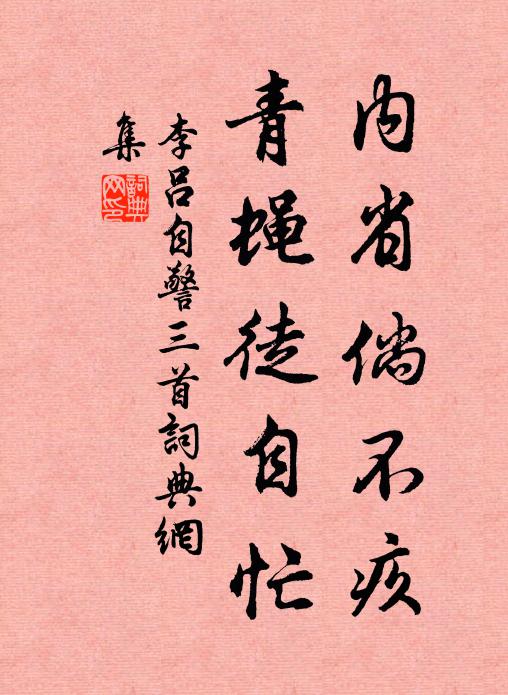 内省倘不疚
青蝇徒自忙
李吕自警三首詞典網
集
詞典
网印